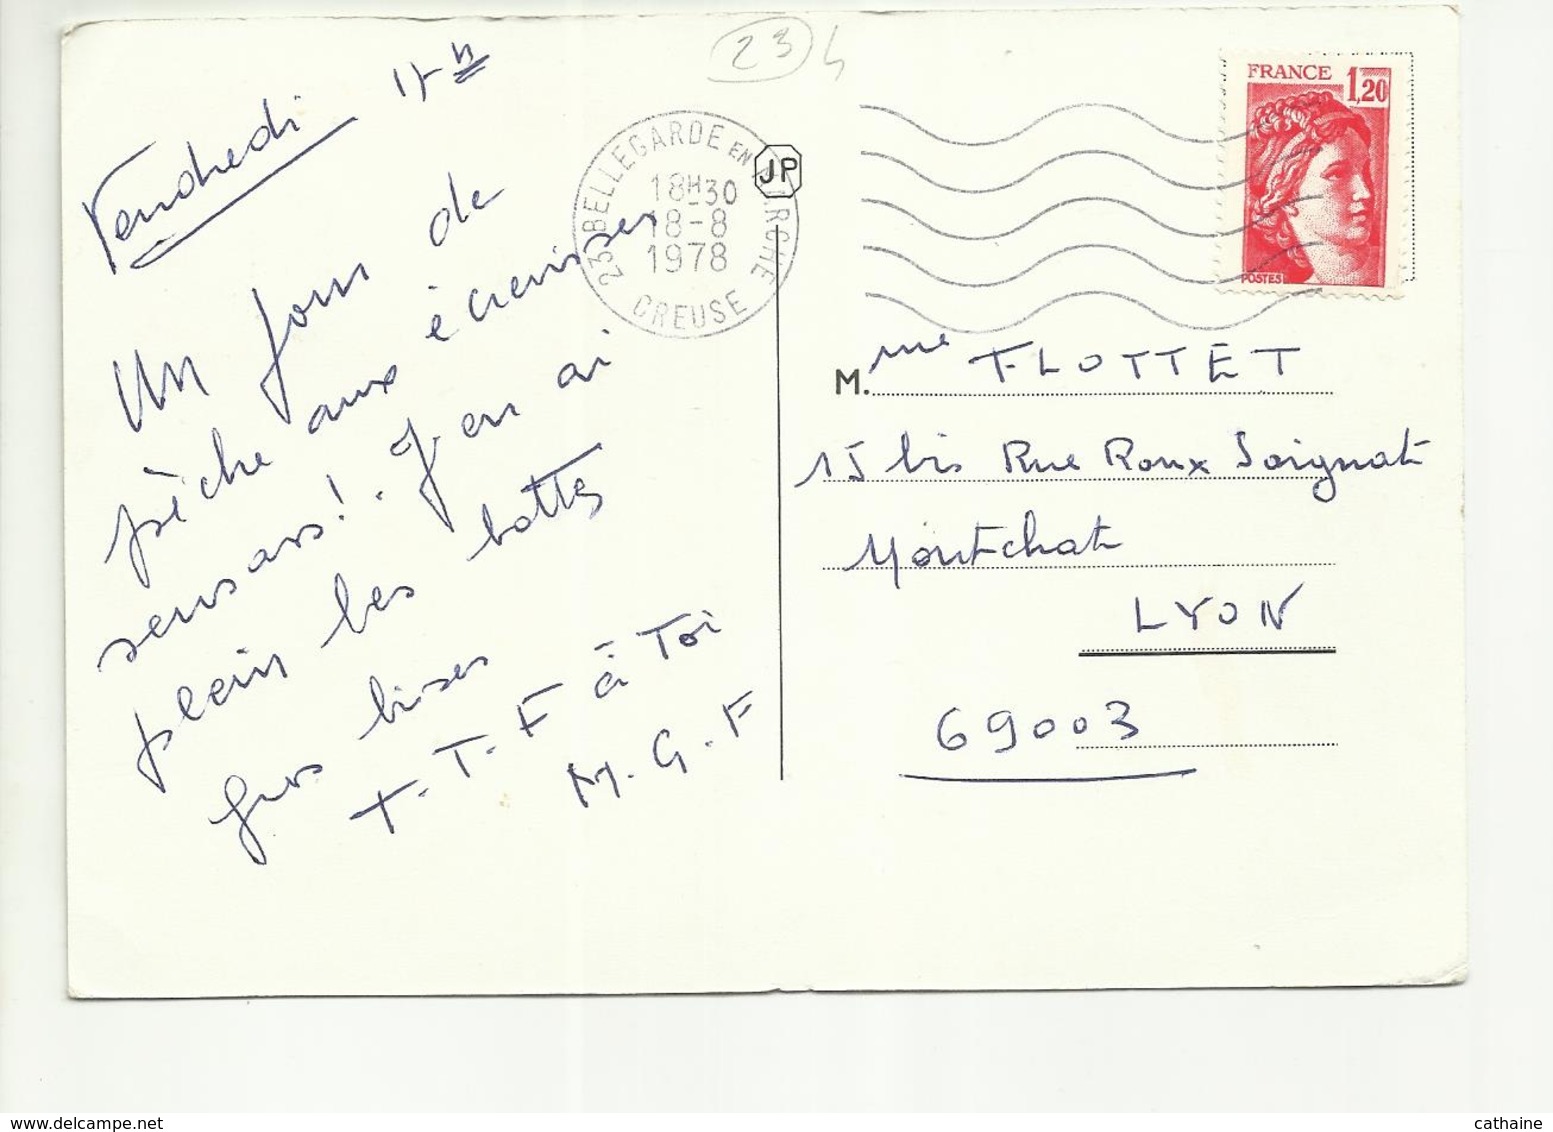 Vendredi 17 h
Un jour de
pêche aux écrevisses
sensas! . J'en ai
plein les bottes
Gros bises
T.T.F à Toi
M.G.F
23 4
23 BELLEGARDE EN MARCHE
18H30
18-8
1978
CREUSE
JP
FRANCE 1,20
POSTES
M. me FLOTTET
15 bis Rue Roux Soignat
Montchat
LYON
69003
cathaine